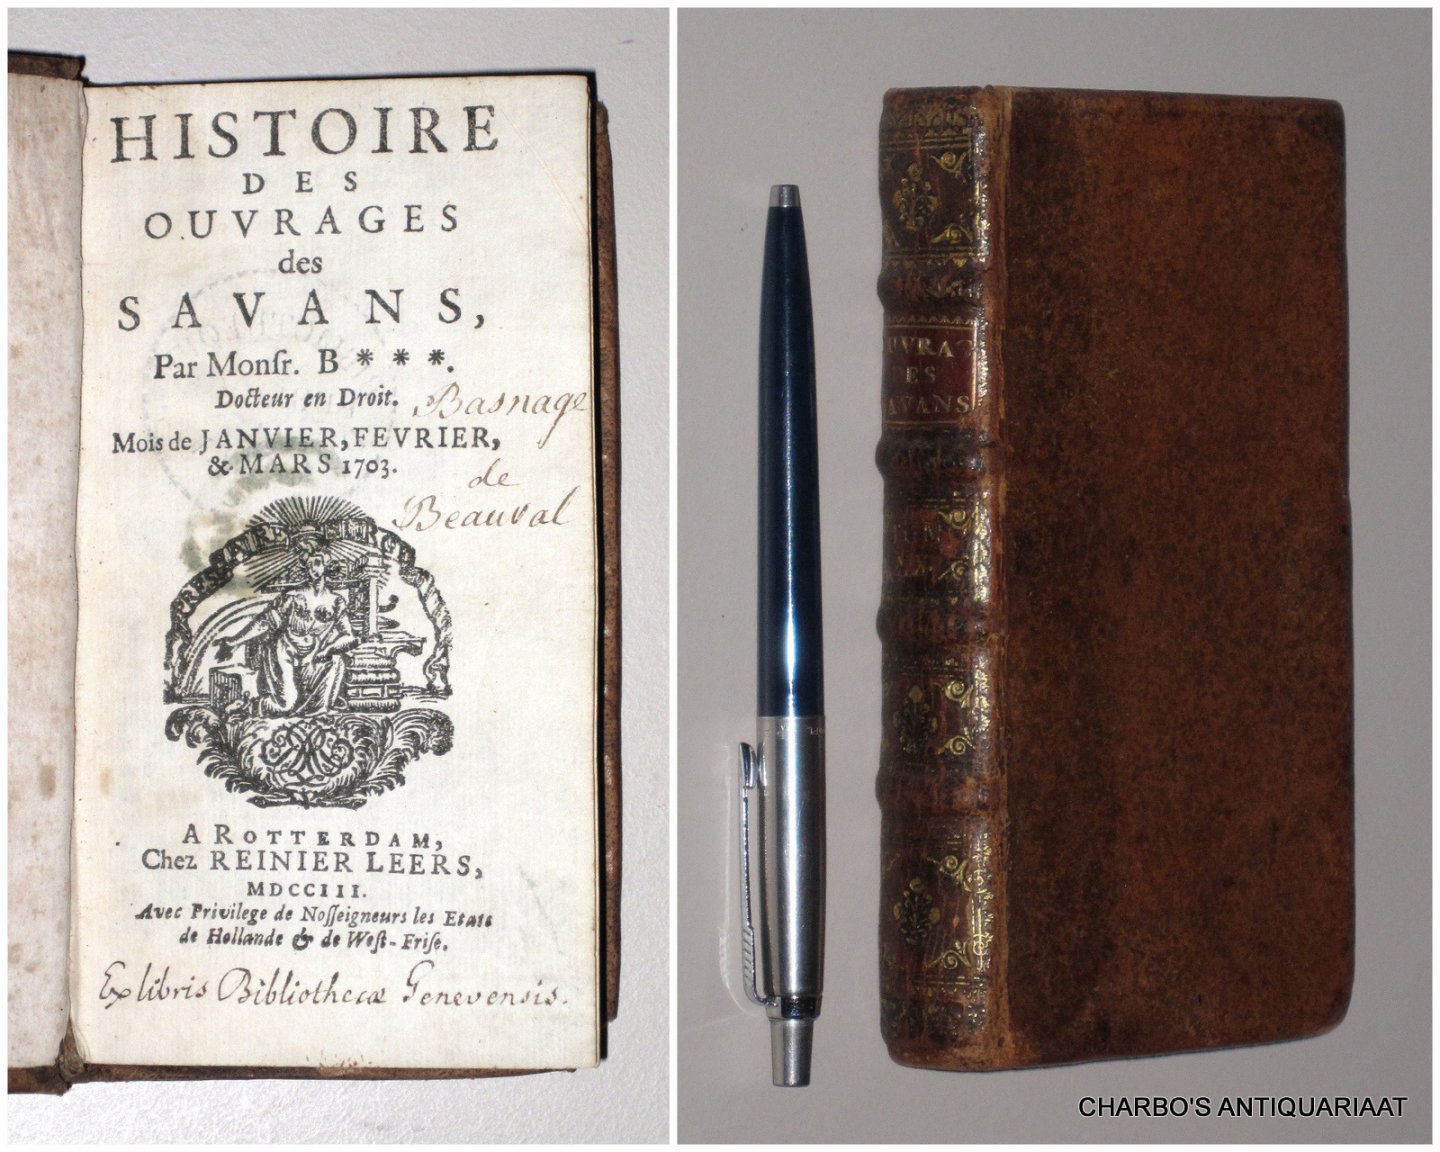 HISTOIRE
DES
OUVRAGES
des
SAVANS,
Par Monſr. B * * *.
Docteur en Droit.
Basnage
Mois de JANVIER, FEVRIER,
& MARS 1703.
de
Beauval
A ROTTERDAM,
Chez REINIER LEERS,
MDCCIII.
Avec Privilege de Noſſeigneurs les Etats
de Hollande & de Weſt-Friſe.
Ex libris Bibliothecæ Genevensis.
UVRA
DES
AVANS
CHARBO'S ANTIQUARIAAT